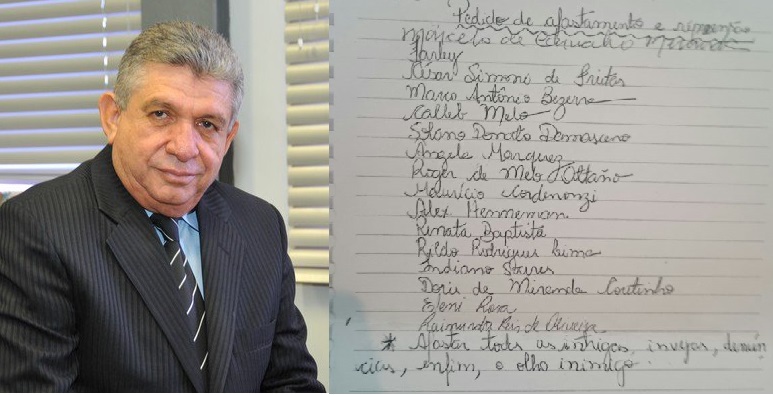 Pedido de afastamento e remoção
de Carvalho
Farley
Simoni de Freitas
Marco Antônio Bezerra
Calleb Melo
Solano Donato Damasceno
Angela Marquez
Roger de Melo Ottaño
Maurício Cordenonzi
Alex Hennemann
Renata Baptista
Rildo Rodrigues Lima
Indiano Soares
Doriu de Miranda Coutinho
Eleni Rosa
Raimundo Reis de Oliveira
* Afastar todas as intrigas, invejas, denún
cias, enfim, o olho inimigo.